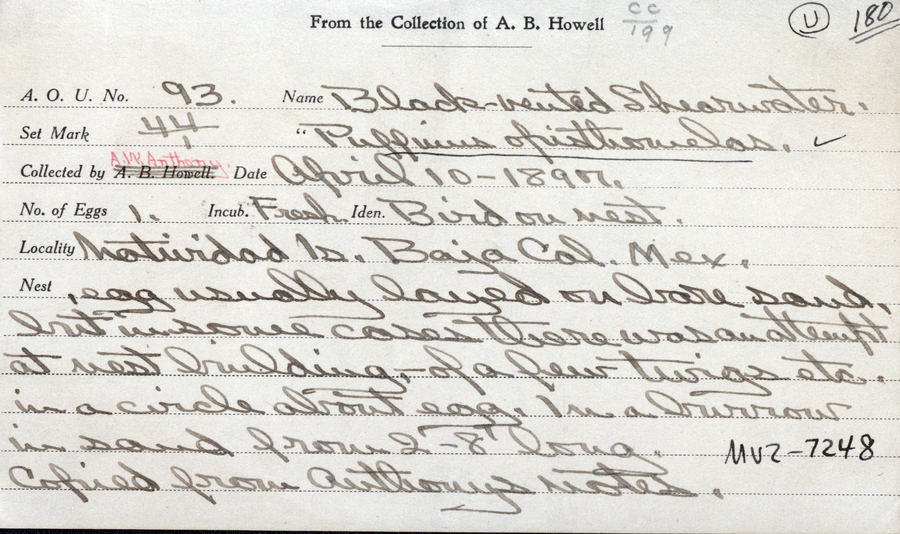 From the Collection of A. B. Howell
CC
199
U
180
A. O. U. No. 93. Name Black-vented Shearwater.
Set Mark 44/1 " Puffinus opisthomelas. ✓
A.W. Anthony.
Collected by A. B. Howell. Date April 10-1897.
No. of Eggs 1. Incub. Fresh Iden. Bird on nest.
Locality Natividad Is. Baja Cal. Mex.
Nest , egg usually layed on bare sand,
but in some cases there was an attempt
at nest building, - of a few twigs etc.
in a circle about egg. In a burrow
in sand from 2'-8' long.
MVZ-7248
Copied from Anthonys notes.